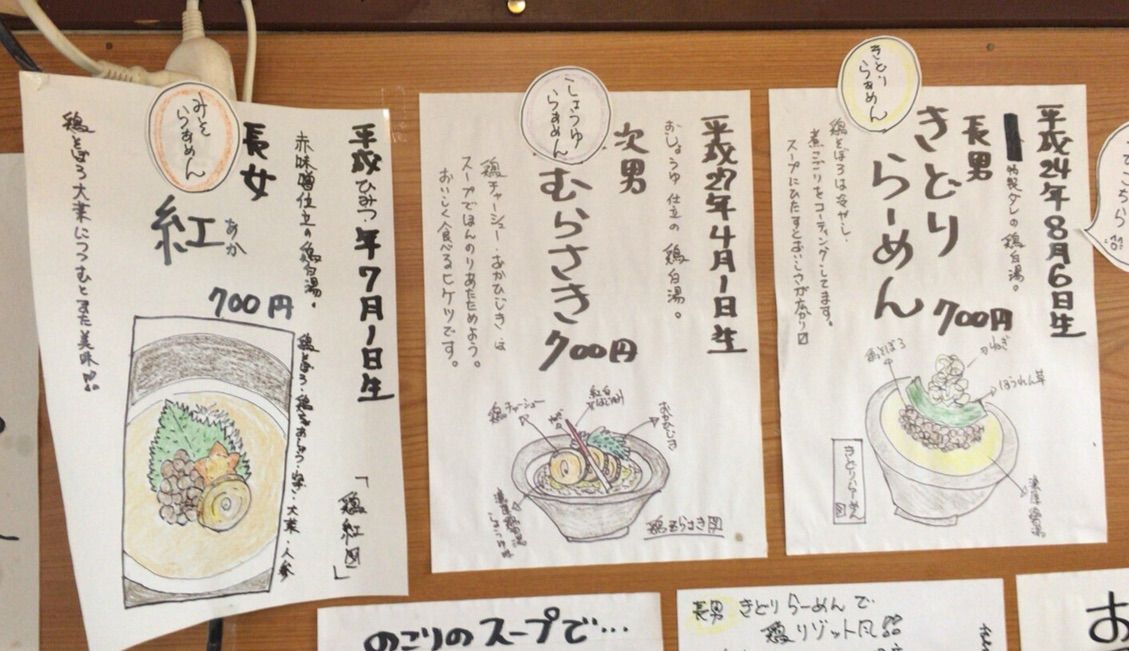 きとり
らぁめん
平成24年8月6日生
特製ダレの鶏白湯。
長男
きとり
らーめん
700円
鶏そぼろは冷ヤし、
煮こごりをコーティングしてます。
スープにひたすとおいしさが広がり〼
鶏そぼろ
ねぎ
ほうれん草
濃厚鶏白湯
きとりらーめん図
しょうゆ
らぁめん
平成27年4月1日生
おしょうゆ仕立の鶏白湯。
次男
むらさき
700円
鶏チャーシュー・おかひじき・は
スープでほんのりあたためよう。
おいしく食べるヒケツです。
鶏チャーシュー
紅白
おかひじき
鶏むらさき図
みそ
らぁめん
平成ひみつ年7月1日生
赤味噌仕立の鶏白湯。
長女
紅
あか
700円
鶏そぼろ大葉につつむとまた美味
鶏そぼろ・鶏
大葉・人参
「鶏紅図」
のこりのスープで…
長男きとりらーめんで
鶏リゾット風
こちら
お